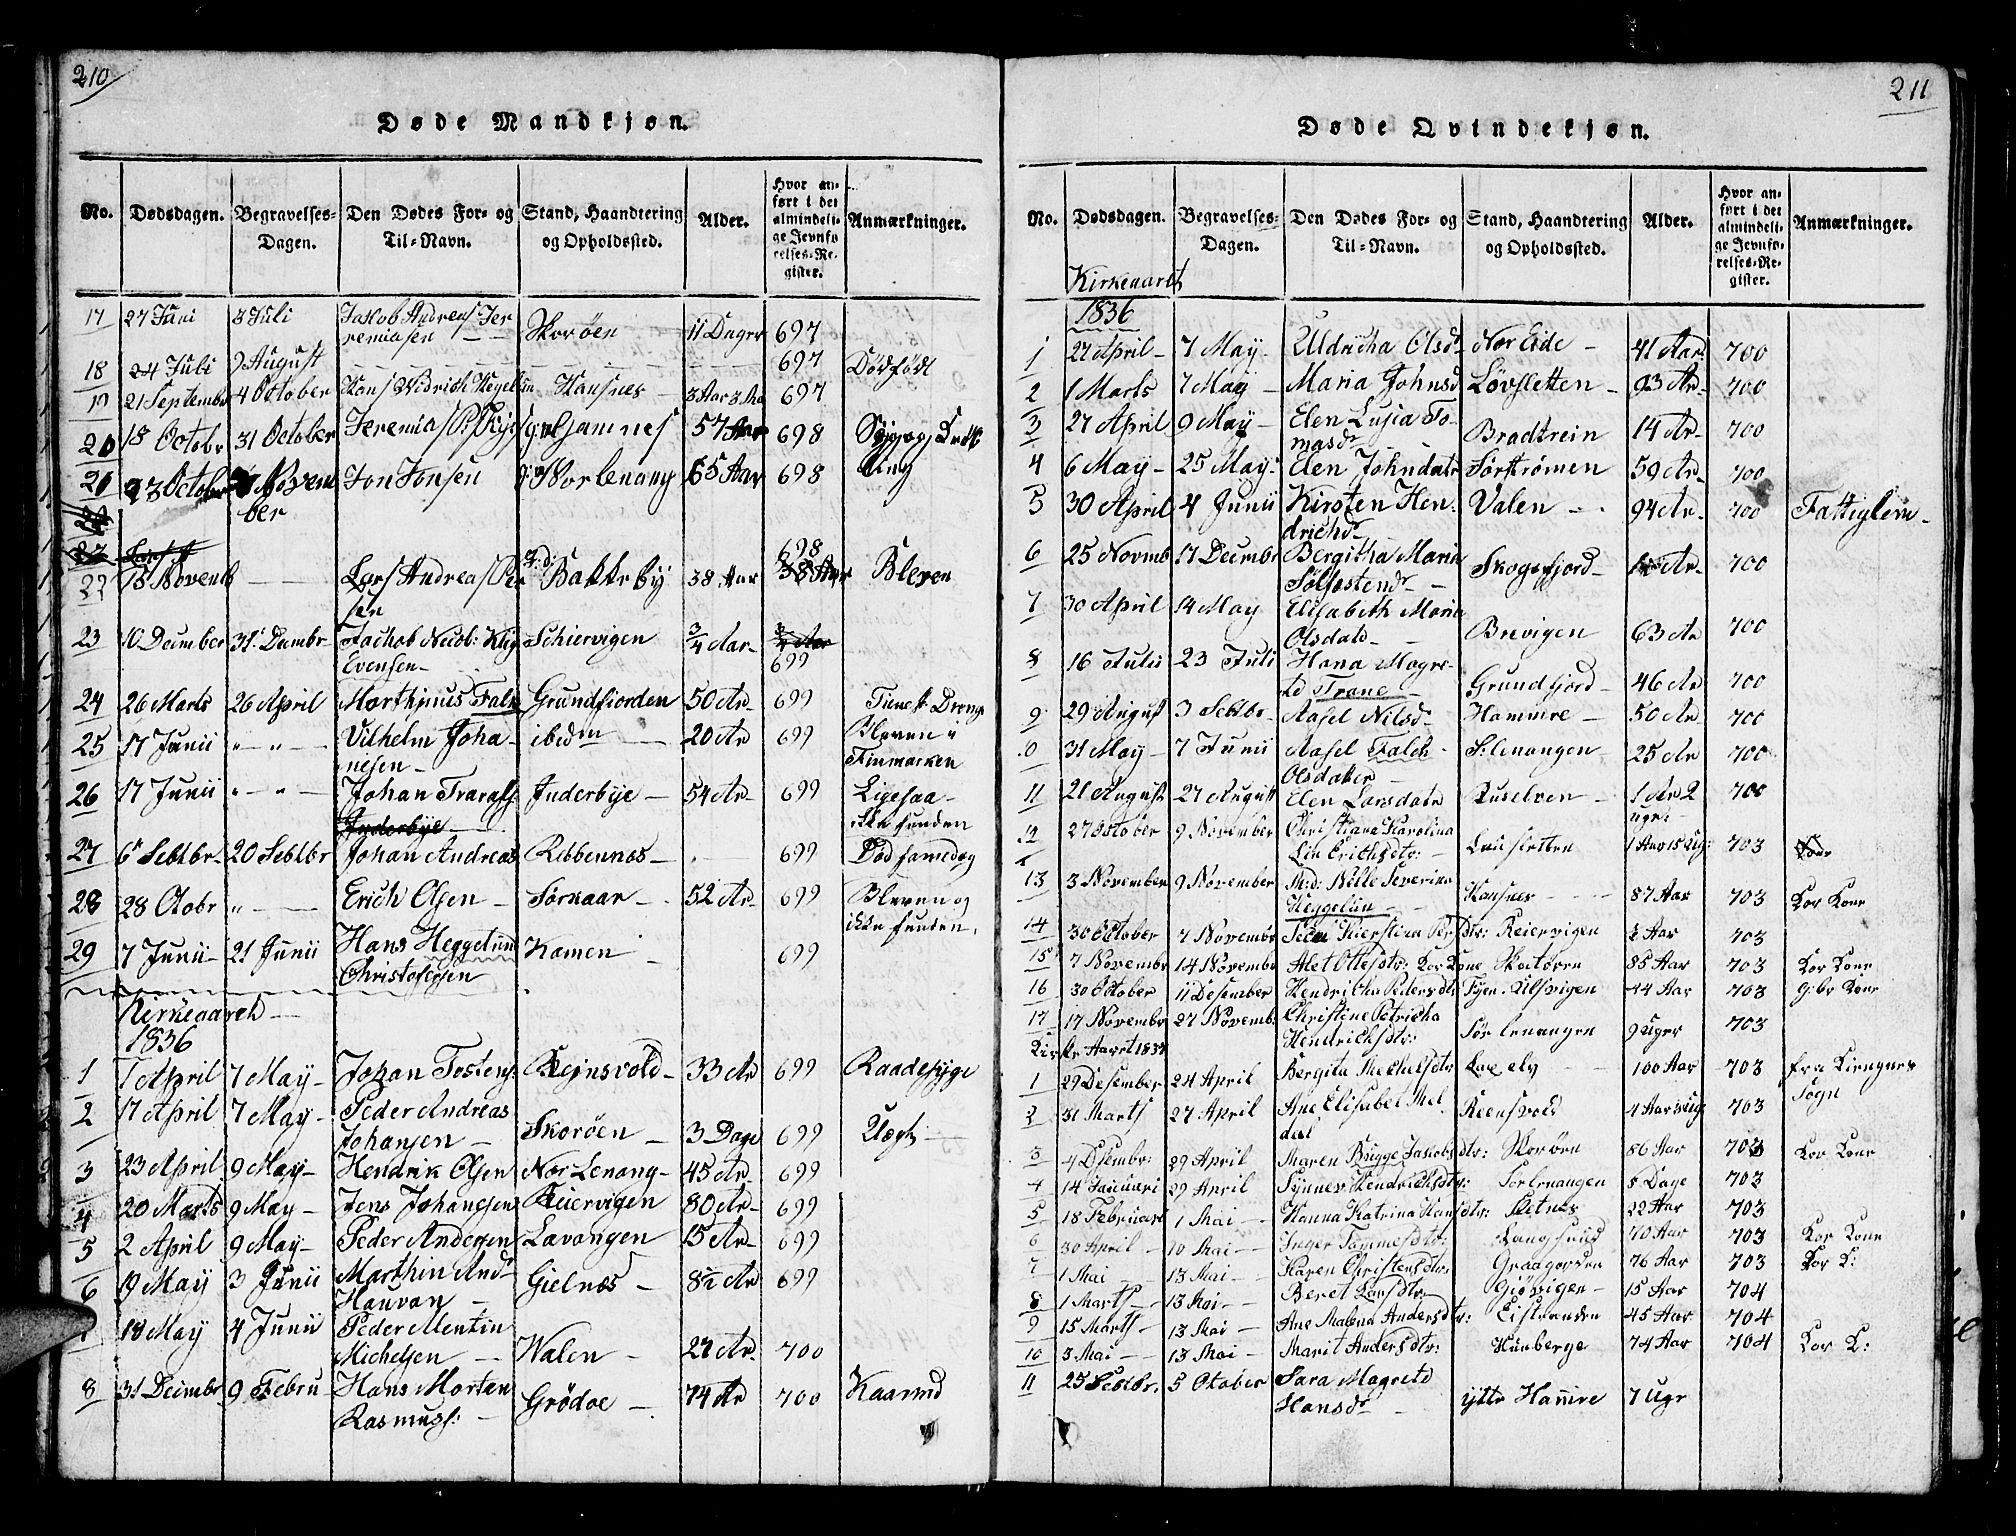 210
Døde Mandkjøn.
No. Dødsdagen. Begravelses-Dagen. Den Dødes For- og Til-Navn. Stand, Haandtering og Opholdssted. Alder. Hvor anført i det almindelige Jevnførelses-Register. Anmærkninger.
17 27 Juni 3 Juli Jakob Andreas Jeremiasen Skorøen 11 Dager 697
18 24 Juli 9 August 697 Dødfødt
19 21 September 4 October Hans Hansnes 3 Aar 697
20 18 October 31 October Jeremias 57 Aar 698
21 23 October November Jon Jonsen Norlenang 65 Aar 698
22 Novemb Lars Andreas Per sen Bakkeby 38 Aar 698 Bleven
23 10 December 31 Decembr Evensen Schiervigen 3/4 Aar 699
24 26 Marts 26 April Marthinus Falk Grundfiorden 50 Ar 699
25 17 Junii " " Vilhelm Johanesen ibidm 20 Ar 699 Bleven i Finmarken
26 17 Junii " " Johan Inderbye 54 Ar 699 Ligesaa ikke funden
27 6 Sebtbr 20 Sebtbr Johan Andreas Ribbennæs 699 Død samedag
28 28 Otobr " Erich Olsen Sørkaar 52 Ar 699 Bleven og ikke funden.
29 7 Junii 21 Junii Hans Heggelund Christofersen Kamen 699
Kirkeaaret
1836
1 1 April 7 May Johan Tostens Rejnsvold 33 Ar 699 Raadesyge
2 17 April 7 May Peder Andreas Johansen Skorøen 3 Dage 699
3 23 April 9 May Hendrik Olsen Nor Lenang 45 Ar 699
4 20 Marts 9 May Jens Johansen Reiervigen 80 Ar 699
5 2 April 9 May Peder Andersen Lavangen 15 Ar 699
6 19 May 3 Junii Marthin Andr Hauvan Gielnæs 8 1/2 Ar 699
18 May 4 Junii Peder Mentin Michelsen Walen 27 Ar 700
8 31 Decimbr 9 Febru Hans Morten Rasmuss: Grødøe 74 Ar 700 Kaarmd
211
Døde Qvindekjøn.
No. Dødsdagen. Begravelses-Dagen. Den Dødes For- og Til-Navn. Stand, Haandtering og Opholdssted. Alder. Hvor anført i det almindelige Jevnførelses-Register. Anmærkninger.
Kirkeaaret
1836
1 27 April 7 May Uldricha Olsdr Nor Eide 41 Aar 700
2 1 Marts 7 May Maria Johnsd Løvsletten 93 Ar 700
3 27 April 9 May Elen Lusia Tomasdr Bradtrein 14 Ar 700
4 6 May 25 May Elen Johndatr Sørstrømen 59 Ar 700
5 30 April 4 Junii Kirsten Hendrichdr Valen 94 Ar 700 Fattiglem
6 25 Novmb 17 Decembr Bergitha Maria Sølfestendr Skogsfjord Ar 700
7 30 April 14 May Elisabeth Maria Olsdatr Brevigen 63 Ar 700
8 16 Julii 23 Juli Hana Magrete Trane Grundfjord 46 Ar 700
9 29 August 3 Sebtbr Aasel Nilsdr Hammre 50 Ar 700
0 31 May 7 Junii Aasel Falch Olsdater S:lenangen 25 Ar 700
11 21 August 27 August Elen Larsdatr Russelven 1 Ar 2 uger 700
12 27 October 9 November Christiana Karolina Lin Erichsdtr: Lauksletten 1 Aar 15 Ug: 703
13 3 November 9 November Md: Bille Severina Heggelun Hansnes 87 Aar 703 Kor Kone
14 30 October 7 Novembr Kierstina Persdtr: Reiervigen Aar 703
15 7 Novembr 14 Novembr Alet Ottesdtr: Kor Kone Skatøren 85 Aar 703 Kor Kone
16 30 October 11 Desember Hendricka Pedersdtr Tjen: Ulsvigen 44 Aar 703 Gibr Kone
17 17 Novembr 27 Novemb: Christine Petricka Hendrichsdtr: Sør Lenangen 9 uger 703
Kirke Aaret 1837
1 29 Desember 24 April Bergita Michelsdtr Lac elv 100 Aar 703 fra Liengnes Sogn
2 31 Marts 27 April Ane Elisabet Meldal Reensvold 4 Aar ug 703
3 4 Desembr: 29 April Maren Brigge Jacobsdtr: Skorøen 86 Aar 703 Kor Kone
4 14 Januari 29 April Synnev Hendrichsdtr: Sør Lenangen 8 Dage 703
5 18 Februari 1 Mai Hanna Katrina Hansdtr: Sletnes 22 Aar 703
6 30 April 10 Mai Inger Tommesdtr: Langsund 70 Aar 703 Kor Kone
7 1 Mai 13 Mai Karen Christensdtr: Graagorden 76 Aar 703 Kor K:
8 1 Marts 13 Mai Beret Larsdtr Giøsvigen 15 Aar 704
9 15 Marts 13 Mai Ane Malena Andersdtr: Eistranden 45 Aar 704
10 3 Mai 13 Mai Marit Andersdtr: Hunberge 74 Aar 704 Kor K:
11 25 Sebtbr. 5 Otober Sara Magrete Hansdr ytre Hamre 7 Ugr